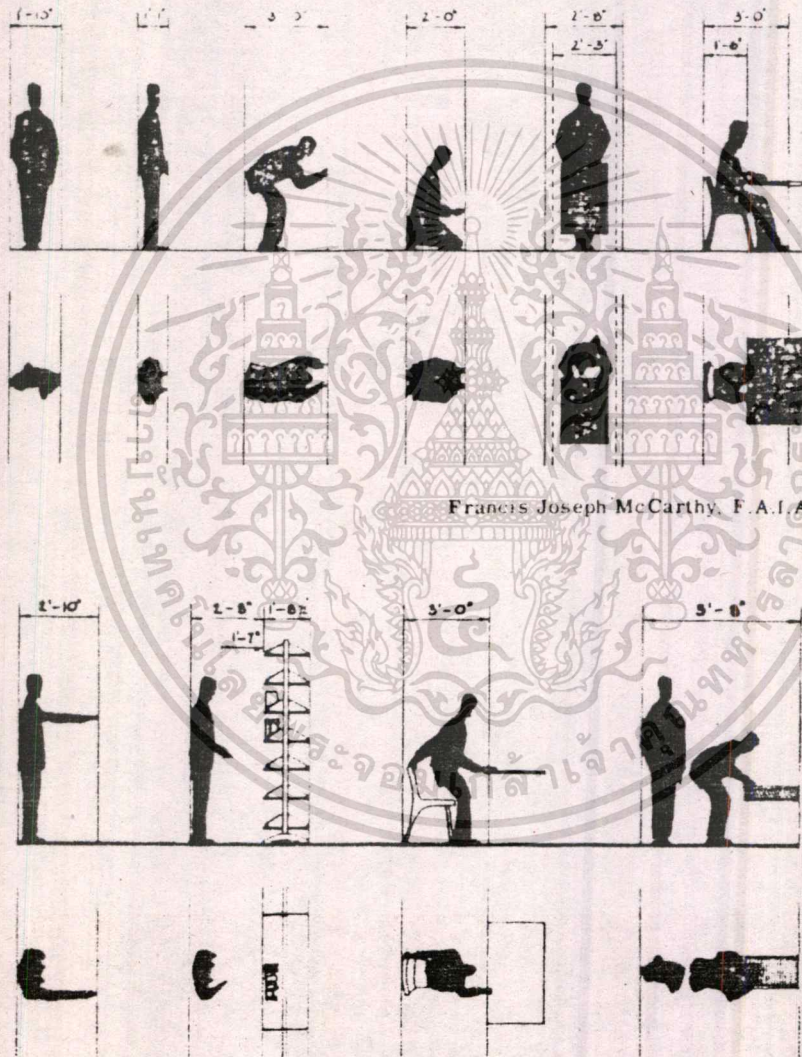 1'-10" 3'-0" 2'-0" 2'-8" 3'-0"
2'-3" 1'-6"
Francis Joseph McCarthy, F.A.I.A
2'-10" 2'-8" 3'-0" 3'-8"
1'-7"
เทคโนโลยีพระจอมเกล้าเจ้าคุณทหารลา